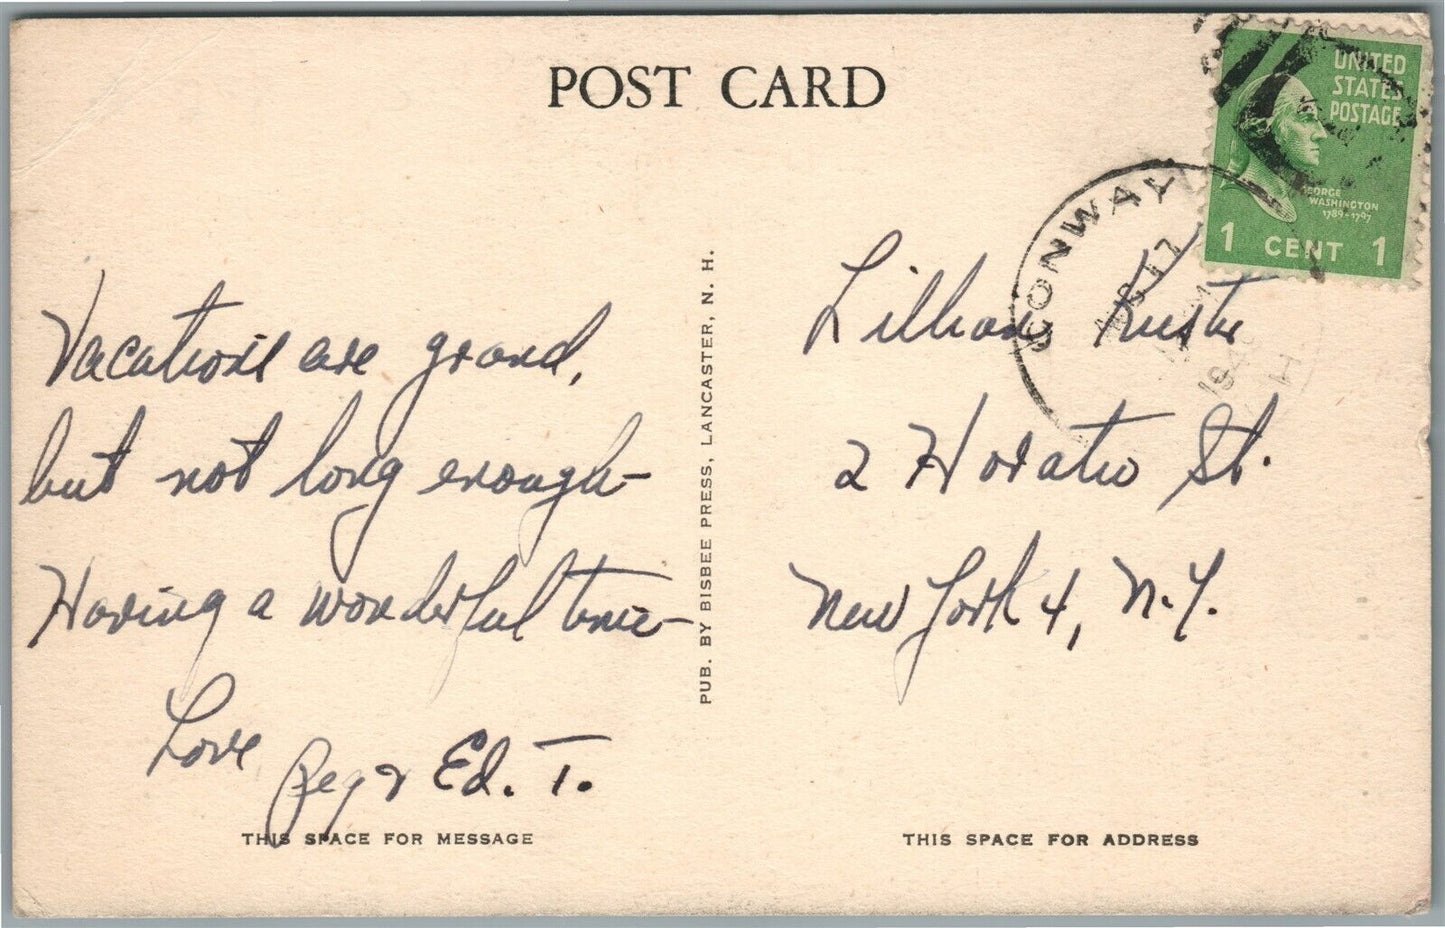 POST CARD
UNITED
STATES
POSTAGE
GEORGE
WASHINGTON
1789-1797
1 CENT 1
CONWAY
AUG 17
Vacations are grand,
but not long enough-
Having a wonderful time-
Love
Peg & Ed. T.
THIS SPACE FOR MESSAGE
PUB. BY BISBEE PRESS, LANCASTER, N. H.
Lillian Kuster
2 Horatio St.
New York 4, N.Y.
THIS SPACE FOR ADDRESS